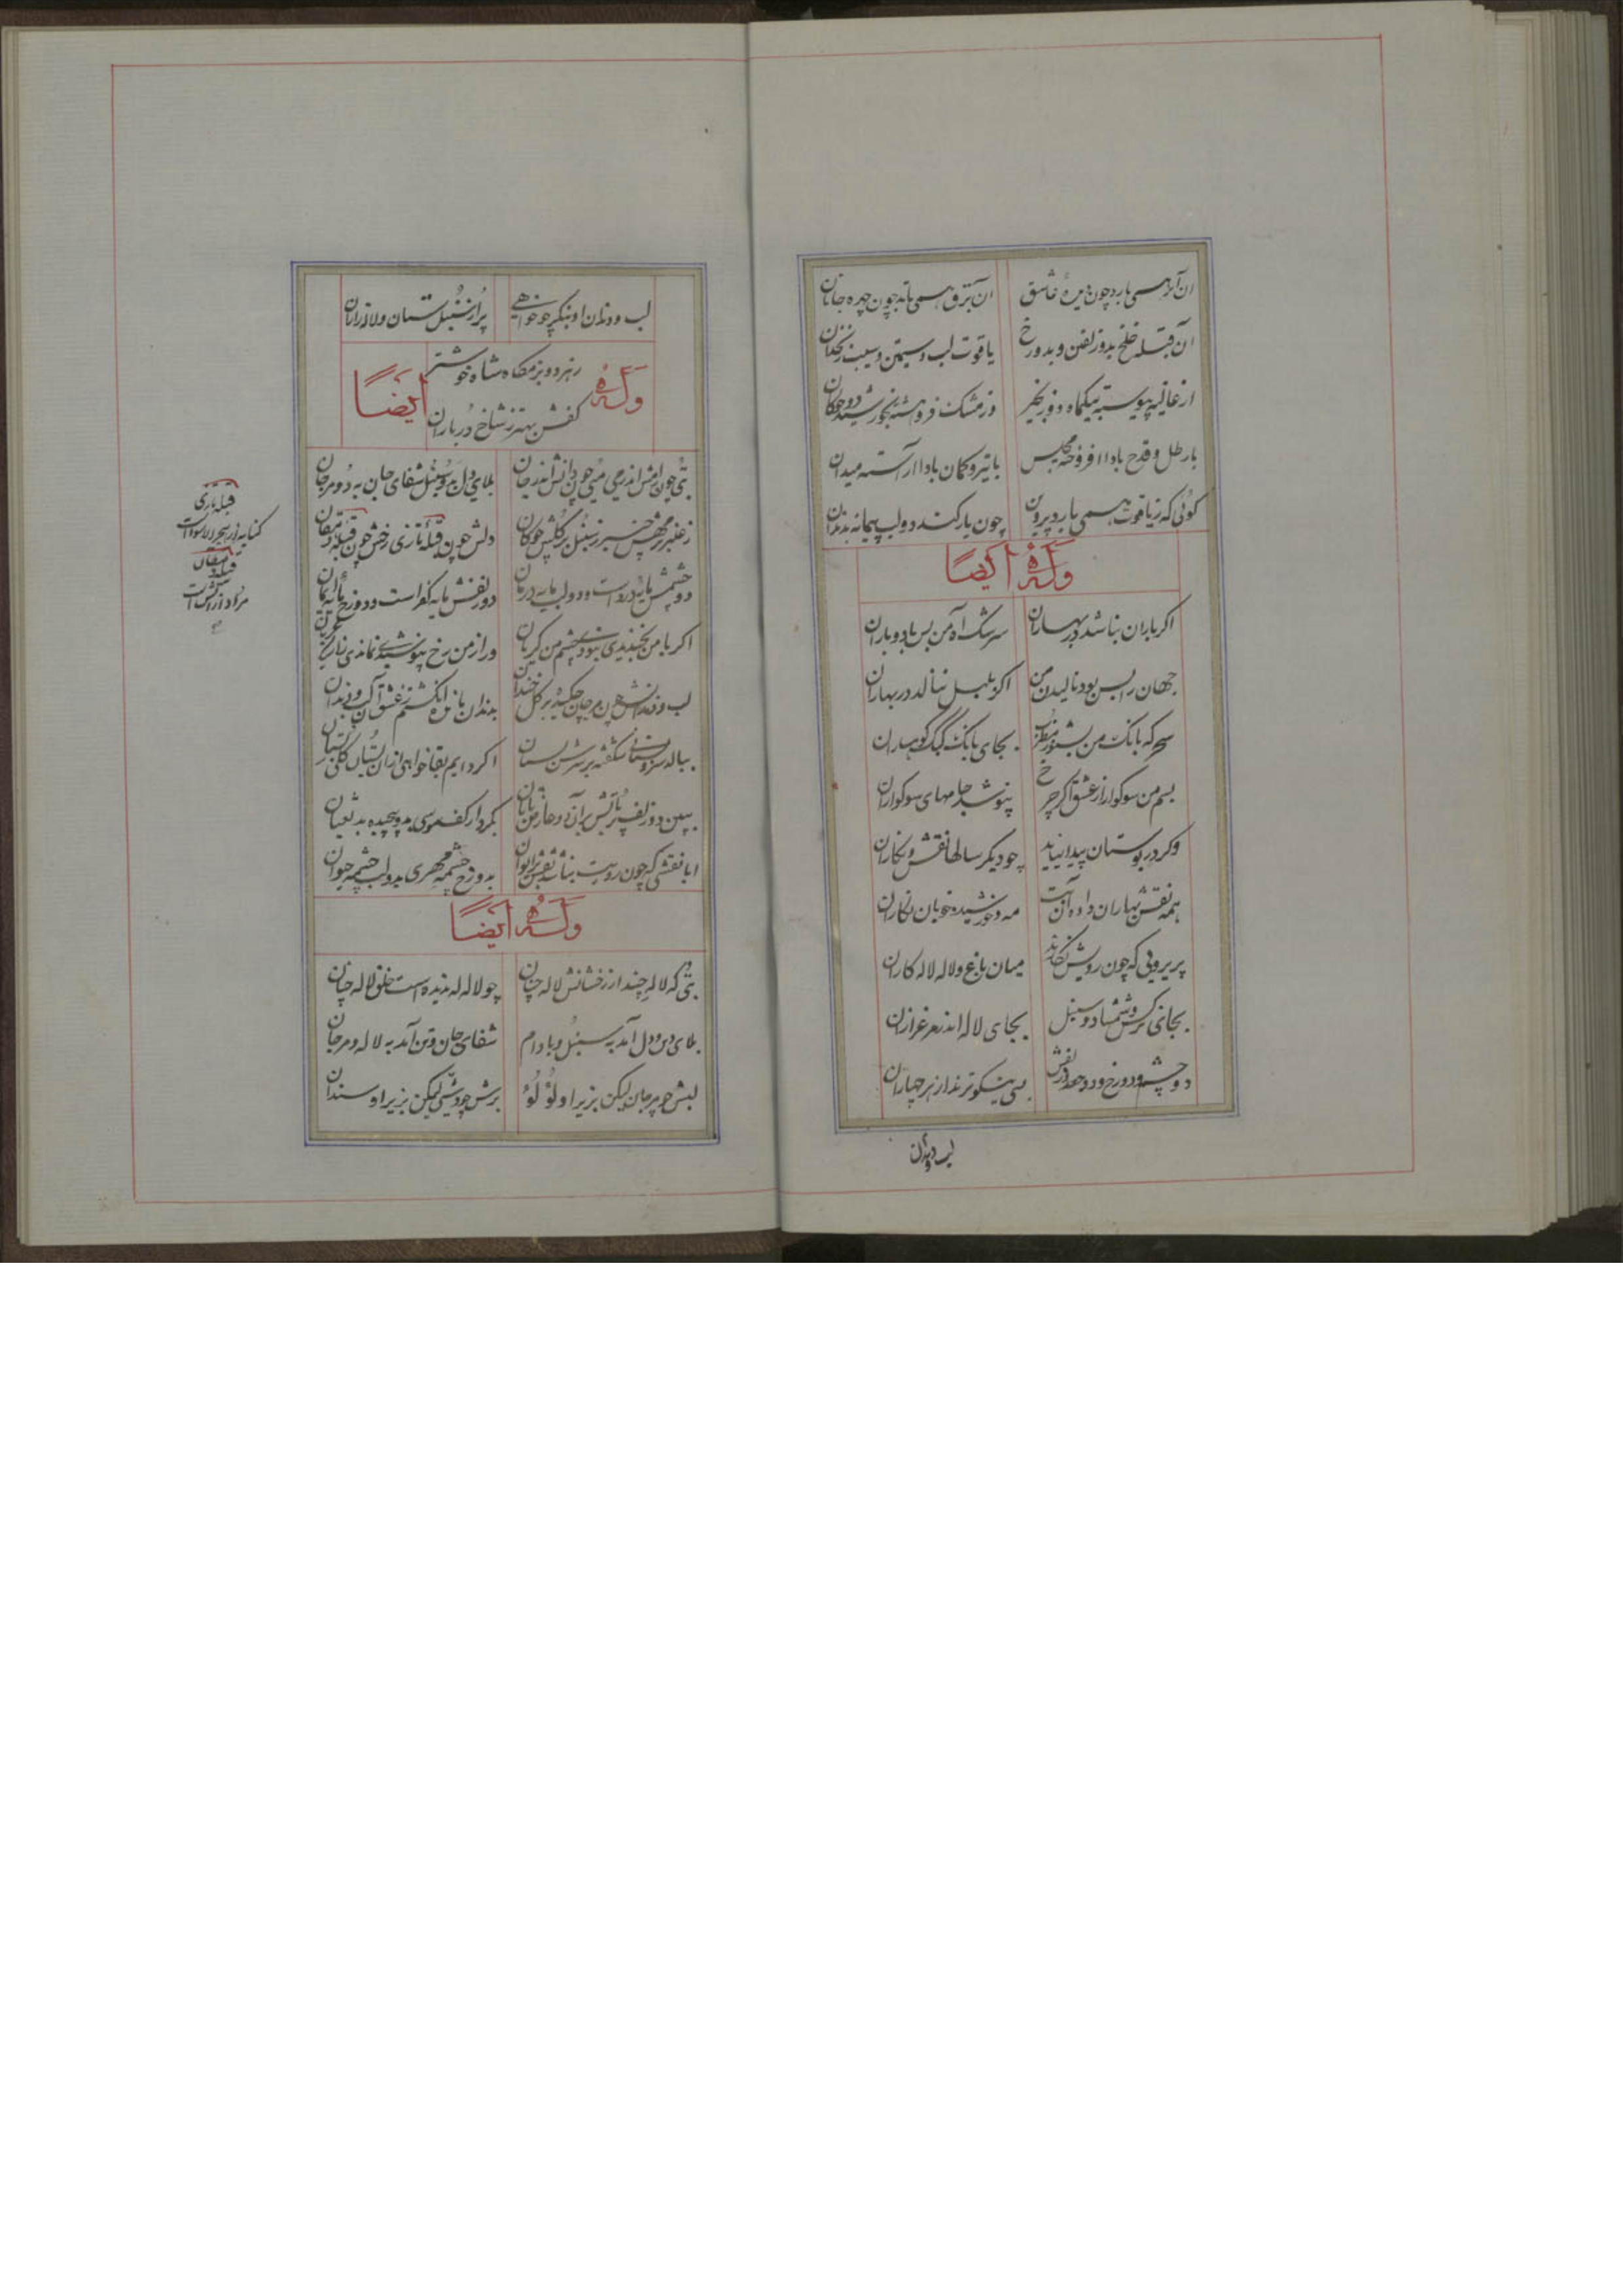 آن ابر همی بارد چون دیدهٔ عاشق
آن برق همی تابد چون چهره جانان
آن قبله خلخ بدو زلفین و بدو رخ
یاقوت لب و سیمتن و سیب زنخدان
از غالیه پیوسته بیکماه دو زنجیر
وز مشک فروهشته بخورشید دو چوکان
با رطل و قدح بادا افروخته مجلس
با تیر و کمان بادا آراسته میدان
کوئی که ز یاقوت همی بارد پروین
چون یار کند دو لب پیمانه بدندان
وله ایضاً
اکر باران نباشد در بهاران
سرشک آه من بس باد و باران
جهان را بس بود نالیدن من
اکر بلبل ننالد در بهاران
سحر که بانک من بشنو
بجای بانک کبک کوهساران
بسم من سوکوار از عشق اکر چرخ
پنوشد جامهای سوکواران
وکر در بوستان پیدا نیاید
چو دیکر سالها نقش و نکاران
همه نقش بهاران داده آنت
مه و خورشید و خوبان نکاران
پریرویی که چون رویش نکارند
میان باغ و لاله لاله کاران
بجای نرکس و شمشاد و سنبل
بجای لاله اندر مرغزاران
دو چشم و دو رخ و دو جعد و زلفش
بسی نیکوترند از هر چهاران
لب و دندان
لب و دندان او بنکر چو خواهی
پر از سنبل ستان و لاله زاران
رهر دو بزمکاه شاه خوشتر
وله ایضاً
کفش بهتر ز شاخ در باران
بتی چون رامش اندر می میی چون دانش اندر جان
بلای دل بدو سنبل شفای جان به دو مرجان
ز عنبر بر مهش چنبر ز سنبل بر کلش چوکان
دلش چون قبلهٔ تازی رخش چون قبله دهقان
دو چشمش مایه درد است و دو لب مایه درمان
دو زلفش مایه کفر است و دو رخ مایه ایمان
اکر با من بخندیدی نبودی چشم من کریان
ور از من رخ نپوشیدی نماندی راز من
لب و دندانش چون مرجان چکیده بر کل خندان
بدندان مانده انکشتم ز عشق آن لب و دندان
ببالا سرو بستانی شکفته بر سرش بستان
اکر دایم بقا خواهی از آن بستان کلی بستان
ببین دو زلف پر تابش بر آن دو عارض تابان
بکردار کف موسی بدو پیچیده بد ثعبان
ایا نقشی که چون رویت نباشد نقش در ایوان
بدو رخ چشمه مهری بدو لب چشمه حیوان
وله ایضاً
بتی که لاله چند از رخانش لاله چنان
چو لاله له ندیده است خلق لاله چنان
بلای دین و دل آمد به سنبل و بادام
شفای جان و تن آمد به لاله و مرجان
لبش چو مرجان لیکن بزیر او لؤلؤ
برش چو دیبی لیکن بزیر او سندان
قبله تازی
کنایه از حجر الاسود است
قبله دهقان
مراد از آتش است